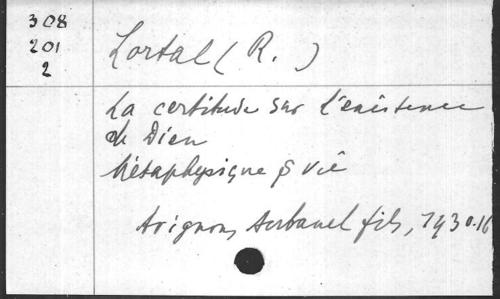 308
201
2
Lortal (R. )
La certitude sur l'existence
de Dieu
Métaphysique & vie
Avignon, Aubanel fils, 1930. 16